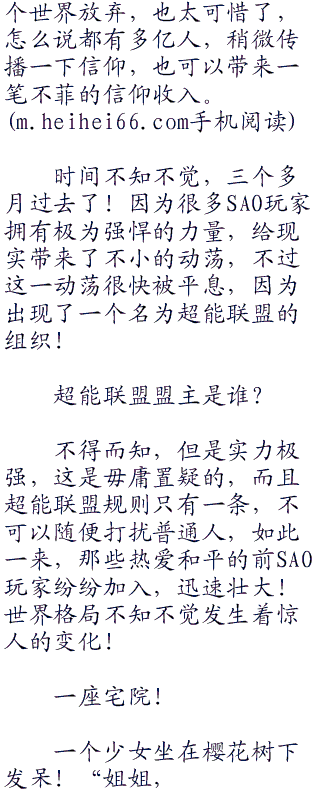 个世界放弃，也太可惜了，
怎么说都有多亿人，稍微传
播一下信仰，也可以带来一
笔不菲的信仰收入。
(m.heihei66.com手机阅读)
时间不知不觉，三个多
月过去了！因为很多SAO玩家
拥有极为强悍的力量，给现
实带来了不小的动荡，不过
这一动荡很快被平息，因为
出现了一个名为超能联盟的
组织！
超能联盟盟主是谁？
不得而知，但是实力极
强，这是毋庸置疑的，而且
超能联盟规则只有一条，不
可以随便打扰普通人，如此
一来，那些热爱和平的前SAO
玩家纷纷加入，迅速壮大！
世界格局不知不觉发生着惊
人的变化！
一座宅院！
一个少女坐在樱花树下
发呆！“姐姐，